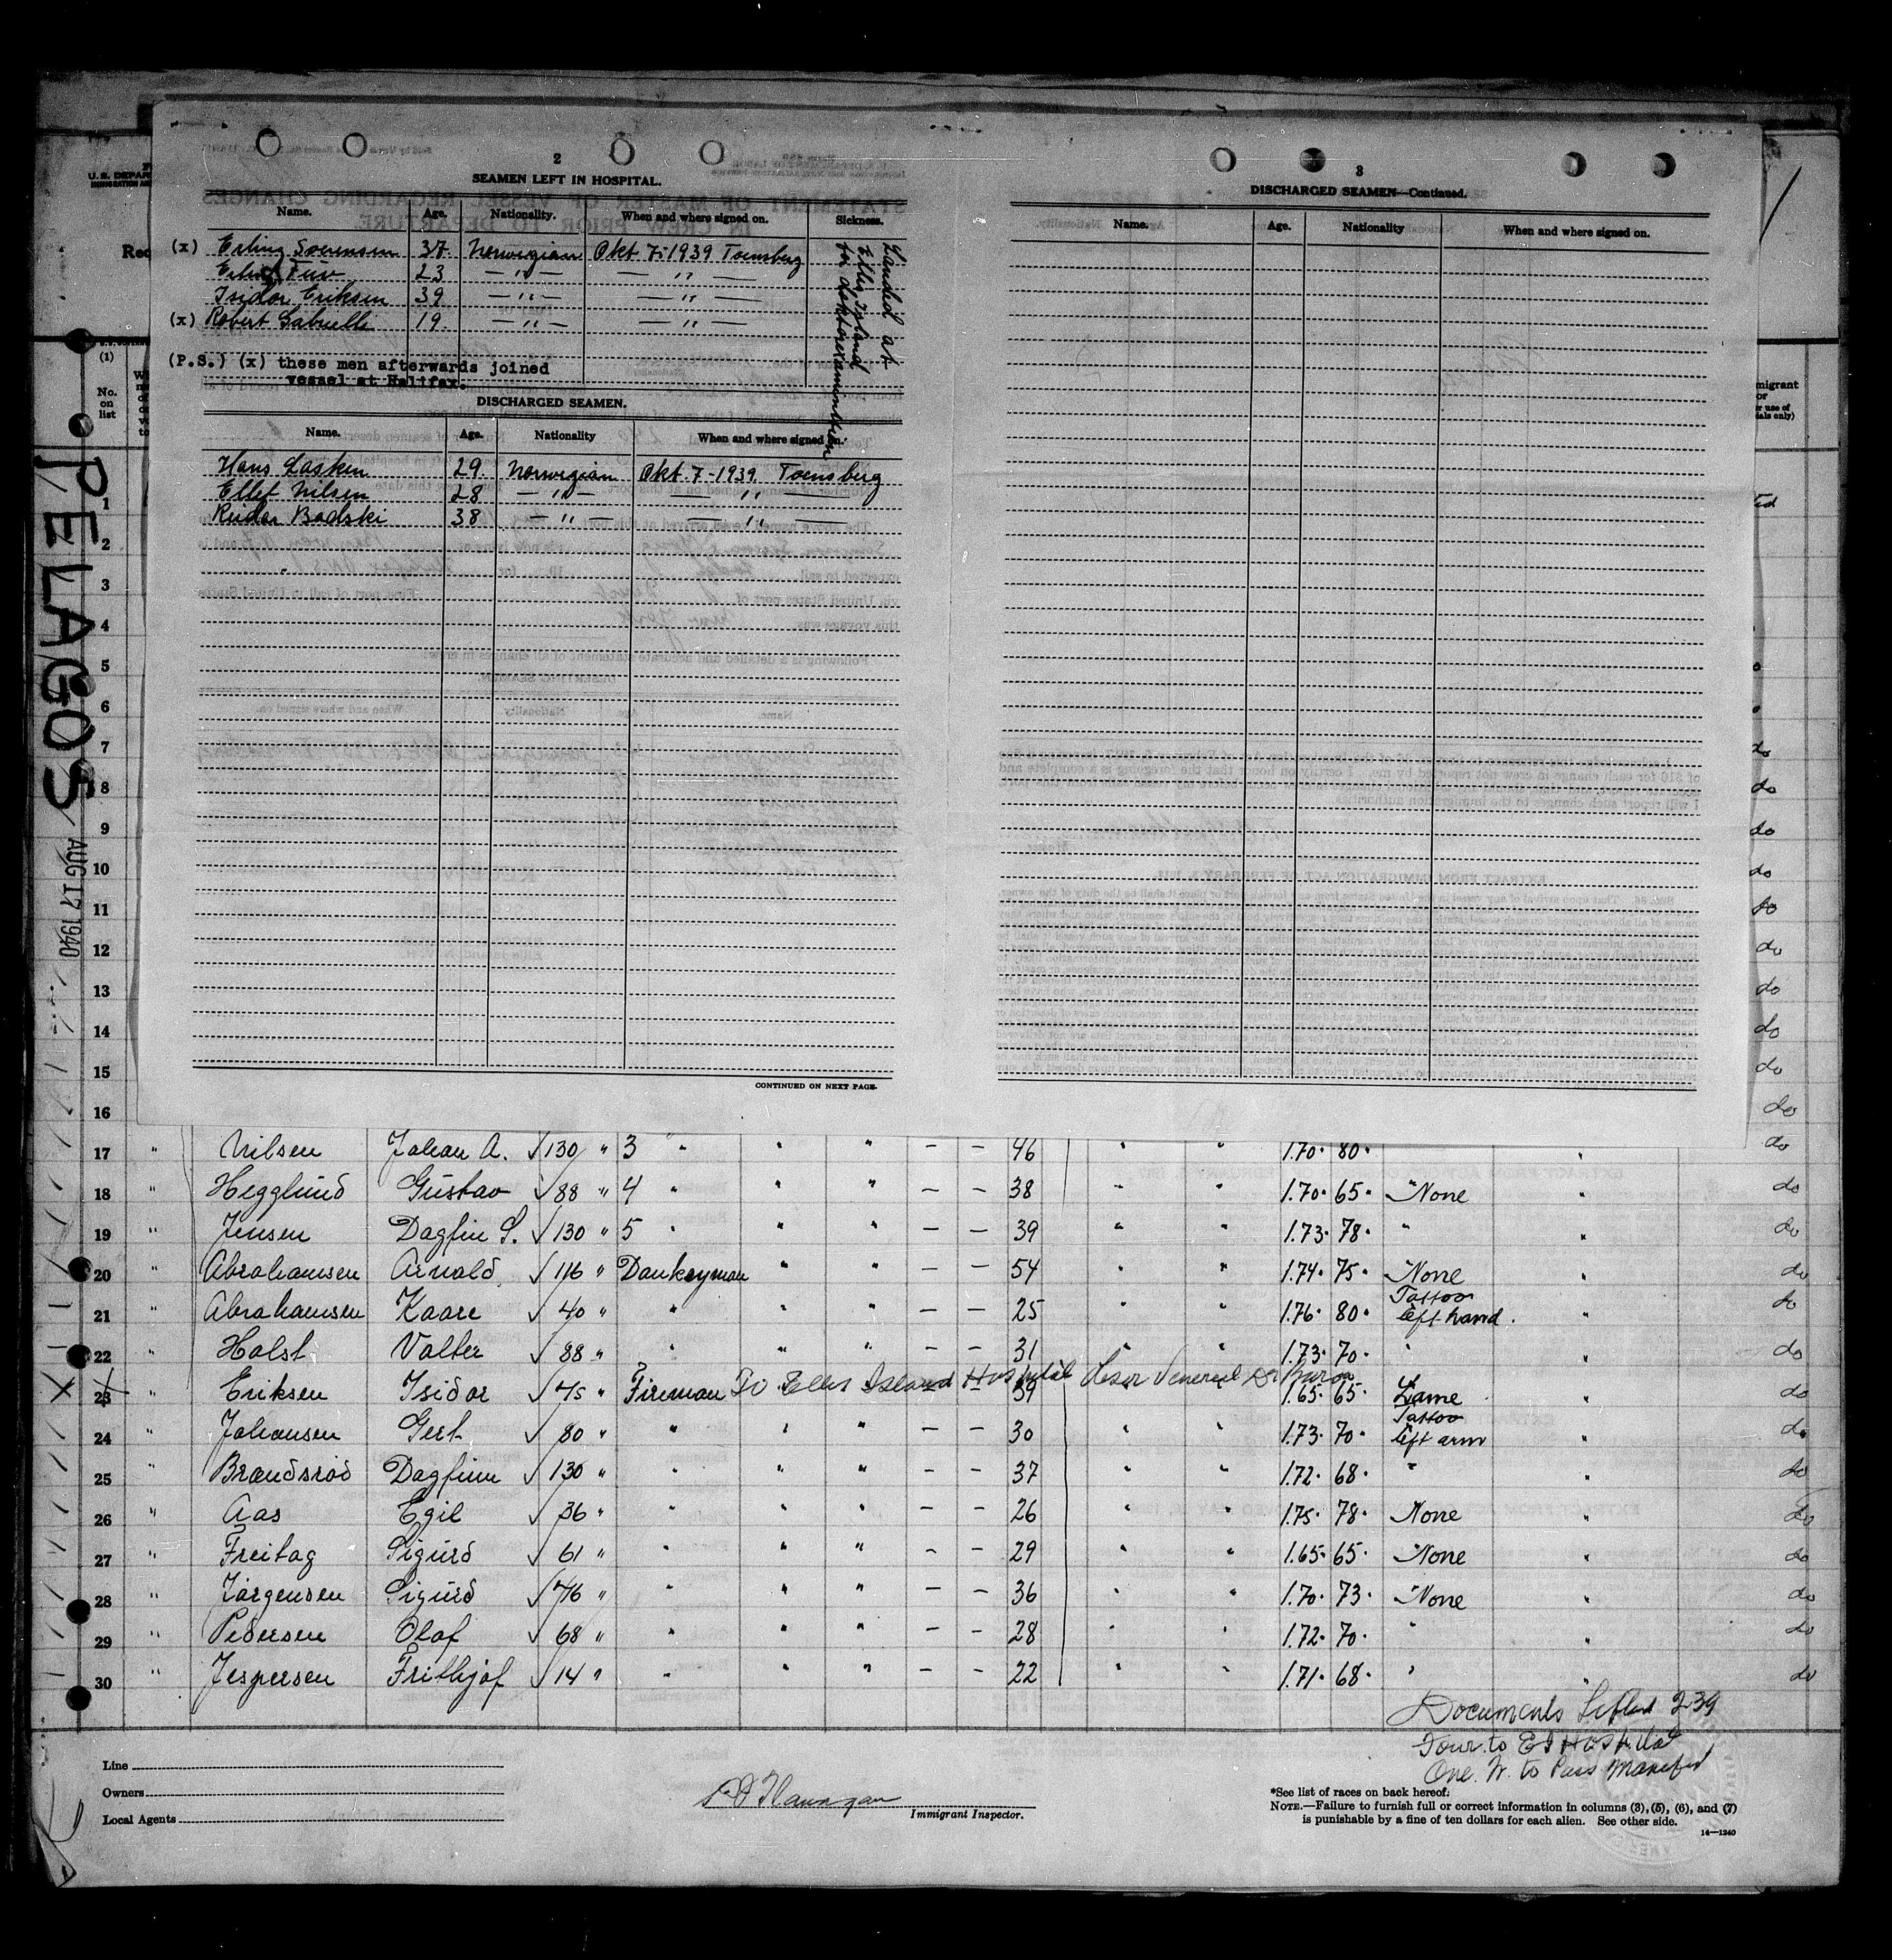 2
SEAMEN LEFT IN HOSPITAL.
Name. Age. Nationality. When and where signed on. Sickness.
(x) Erling Soerensen 37. Norwegian Okt 7-1939 Toensberg
Erling 23 — " — — " —
Isidor Eriksen 39 — " — — " —
(x) Robert Gabrielli 19. — " — — " —
Landed at
Ellis Island
for doktorexamination
(P.S.) (x) these men afterwards joined
vessel at Halifax.
DISCHARGED SEAMEN.
Name. Age. Nationality When and where signed on.
Hans Lasken 29. Norwegian Okt. 7-1939 Toensberg
Ellef Nilsen 28 — " — — " —
Reidar Badski 38 — " — — " —
CONTINUED ON NEXT PAGE.
3
DISCHARGED SEAMEN—Continued.
Name. Age. Nationality When and where signed on.
U. S. DEPAR
(1)
No.
on
list
PELAGOS
AUG 17 1940
1
2
3
4
5
6
7 do
8 do
9 do
10 do
11 do
12 do
13 do
14 do
15 do
16 do
17 " Nilsen Johan A. √ 130 " 3 " " " — — 46 " " 1.70. 80. " do
18 " Hegglund Gustav √ 88 " 4 " " " — — 38 " " 1.70. 65. None " do
19 " Jensen Dagfin S. √ 130 " 5 " " " — — 39 " " 1.73. 78. " " do
20 " Abrahamsen Arnold √ 116 " Donkeyman " " — — 54 " " 1.74. 75. None " do
21 " Abrahamsen Kaare √ 40 " " " " — — 25 " " 1.76. 80. Tattoo left hand. " do
22 " Holst Valter √ 88 " " " " — — 31 " " 1.73. 70. " " do
23 " Eriksen Isidor √ 75 " Fireman To Ellis Island Hospital 39 Venereal Dr 1.65. 65. Lame " do
24 " Johansen Gert √ 80 " " " " — — 30 " " 1.73. 70. Tattoo left arm " do
25 " Brandsrød Dagfinn √ 130 " " " " — — 37 " " 1.72. 68. " " do
26 " Aas Egil √ 36 " " " " — — 26 " " 1.75. 78. None " do
27 " Freitag Sigurd √ 61 " " " " — — 29 " " 1.65. 65. None " do
28 " Jørgensen Sigurd √ 76 " " " " — — 36 " " 1.70. 73. None " do
29 " Pedersen Olaf √ 68 " " " " — — 28 " " 1.72. 70. " " do
30 " Jespersen Frithjof √ 14 " " " " — — 22 " " 1.71. 68. " " do
Documents Lifted 239
Four to E I Hospital
One to Pass Manifest
Line
Owners
Local Agents
Flanagan
Immigrant Inspector.
*See list of races on back hereof.
NOTE.—Failure to furnish full or correct information in columns (3), (5), (6), and (7)
is punishable by a fine of ten dollars for each alien. See other side.
14—1240